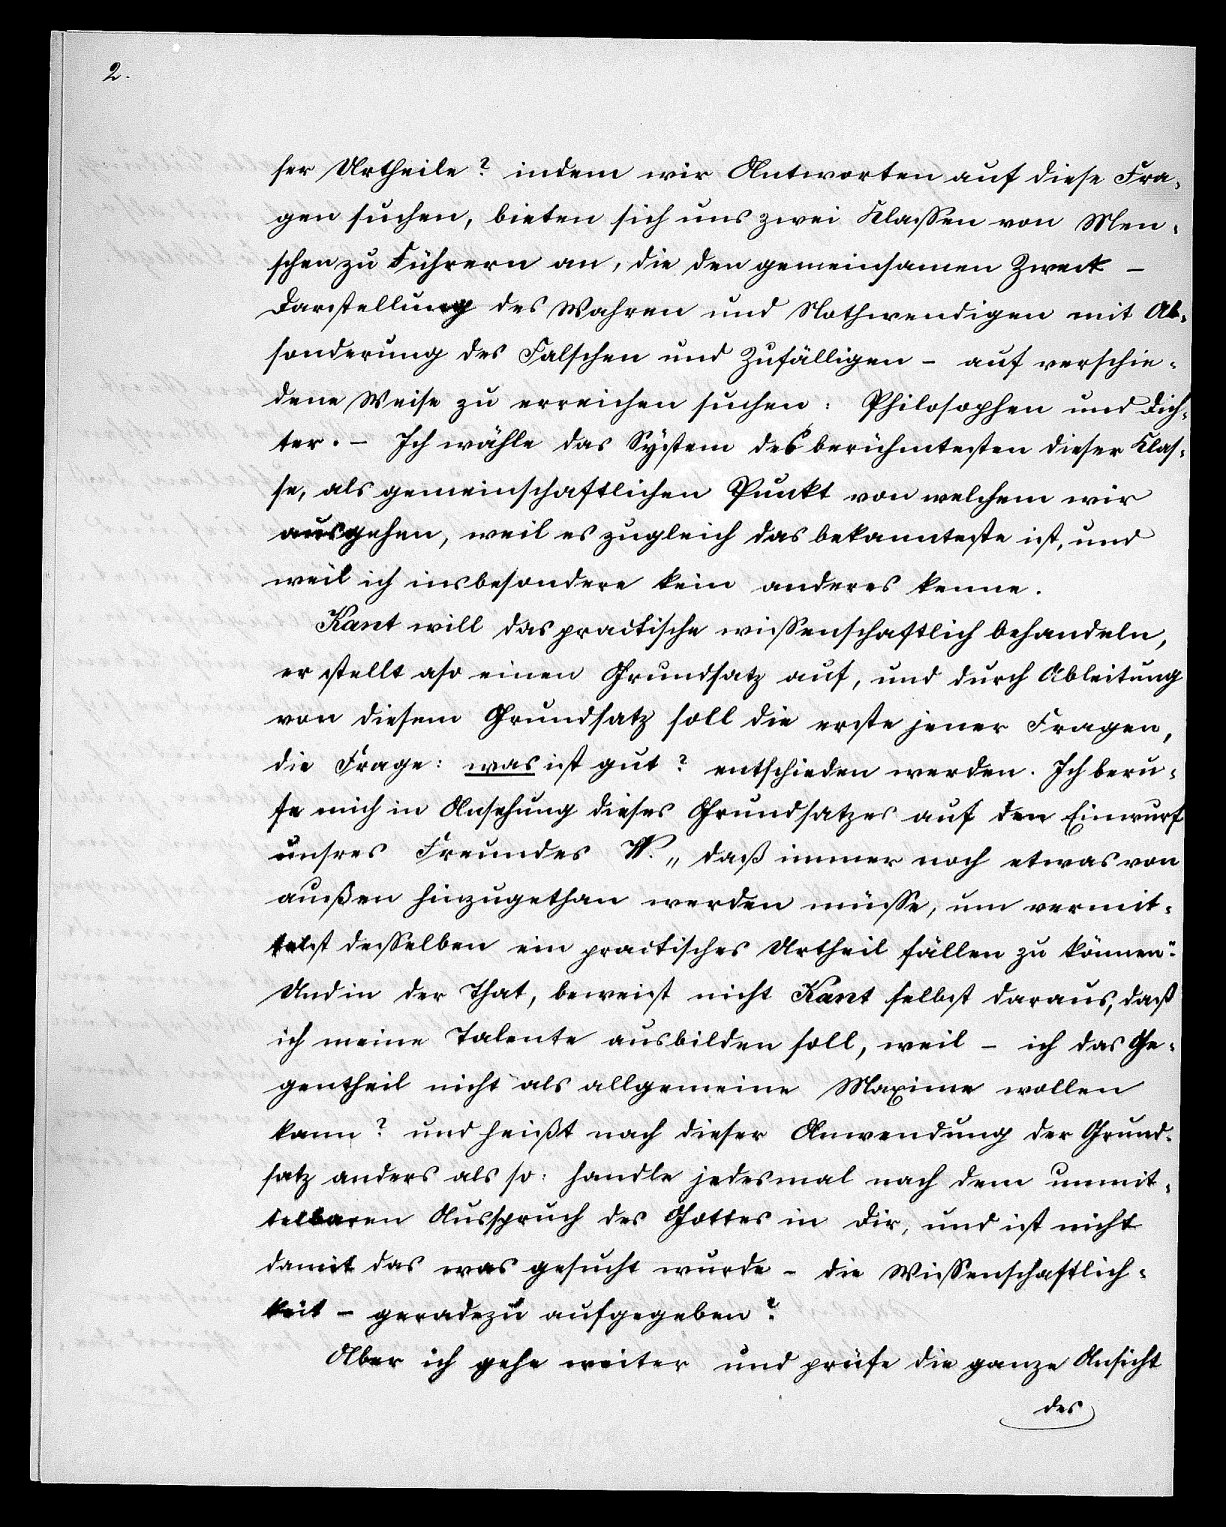 2.
ser Urtheile? indem wir Antworten auf diese Fra-
gen suchen, bieten sich uns zwei Klassen von Men-
schen zu Führern an, die den gemeinsamen Zweck –
Darstellung des Wahren und Nothwendigen mit Ab-
sonderung des Falschen und Zufälligen – auf verschie-
dene Weise zu erreichen suchen: Philosophen und Dich-
ter. – Ich wähle das System des berühmtesten dieser Klas-
se, als gemeinschaftlichen Punkt von welchem wir
ausgehen, weil es zugleich das bekannteste ist, und
weil ich insbesondere kein anderes kenne.
Kant will das practische wissenschaftlich behandeln,
er stellt also einen Grundsatz auf, und durch Ableitung
von diesem Grundsatz soll die erste jener Fragen,
die Frage: was ist gut? entschieden werden. Ich beru-
fe mich in Ansehung dieses Grundsatzes auf den Einwurf
unsres Freundes W. „daß immer noch etwas von
außen hinzugethan werden müsse, um vermit-
telst desselben ein practisches Urtheil fällen zu können“.
Und in der That, beweist nicht Kant selbst daraus, daß
ich meine Talente ausbilden soll, weil – ich das Ge-
gentheil nicht als allgemeine Maxime wollen
kann? und heißt nach dieser Anwendung der Grund-
satz anders als so: handle jedesmal nach dem unmit-
telbaren Ausspruch des Gottes in Dir, und ist nicht
damit das was gesucht wurde – die Wissenschaftlich-
keit – geradezu aufgegeben?
Aber ich gehe weiter und prüfe die ganze Ansicht
des